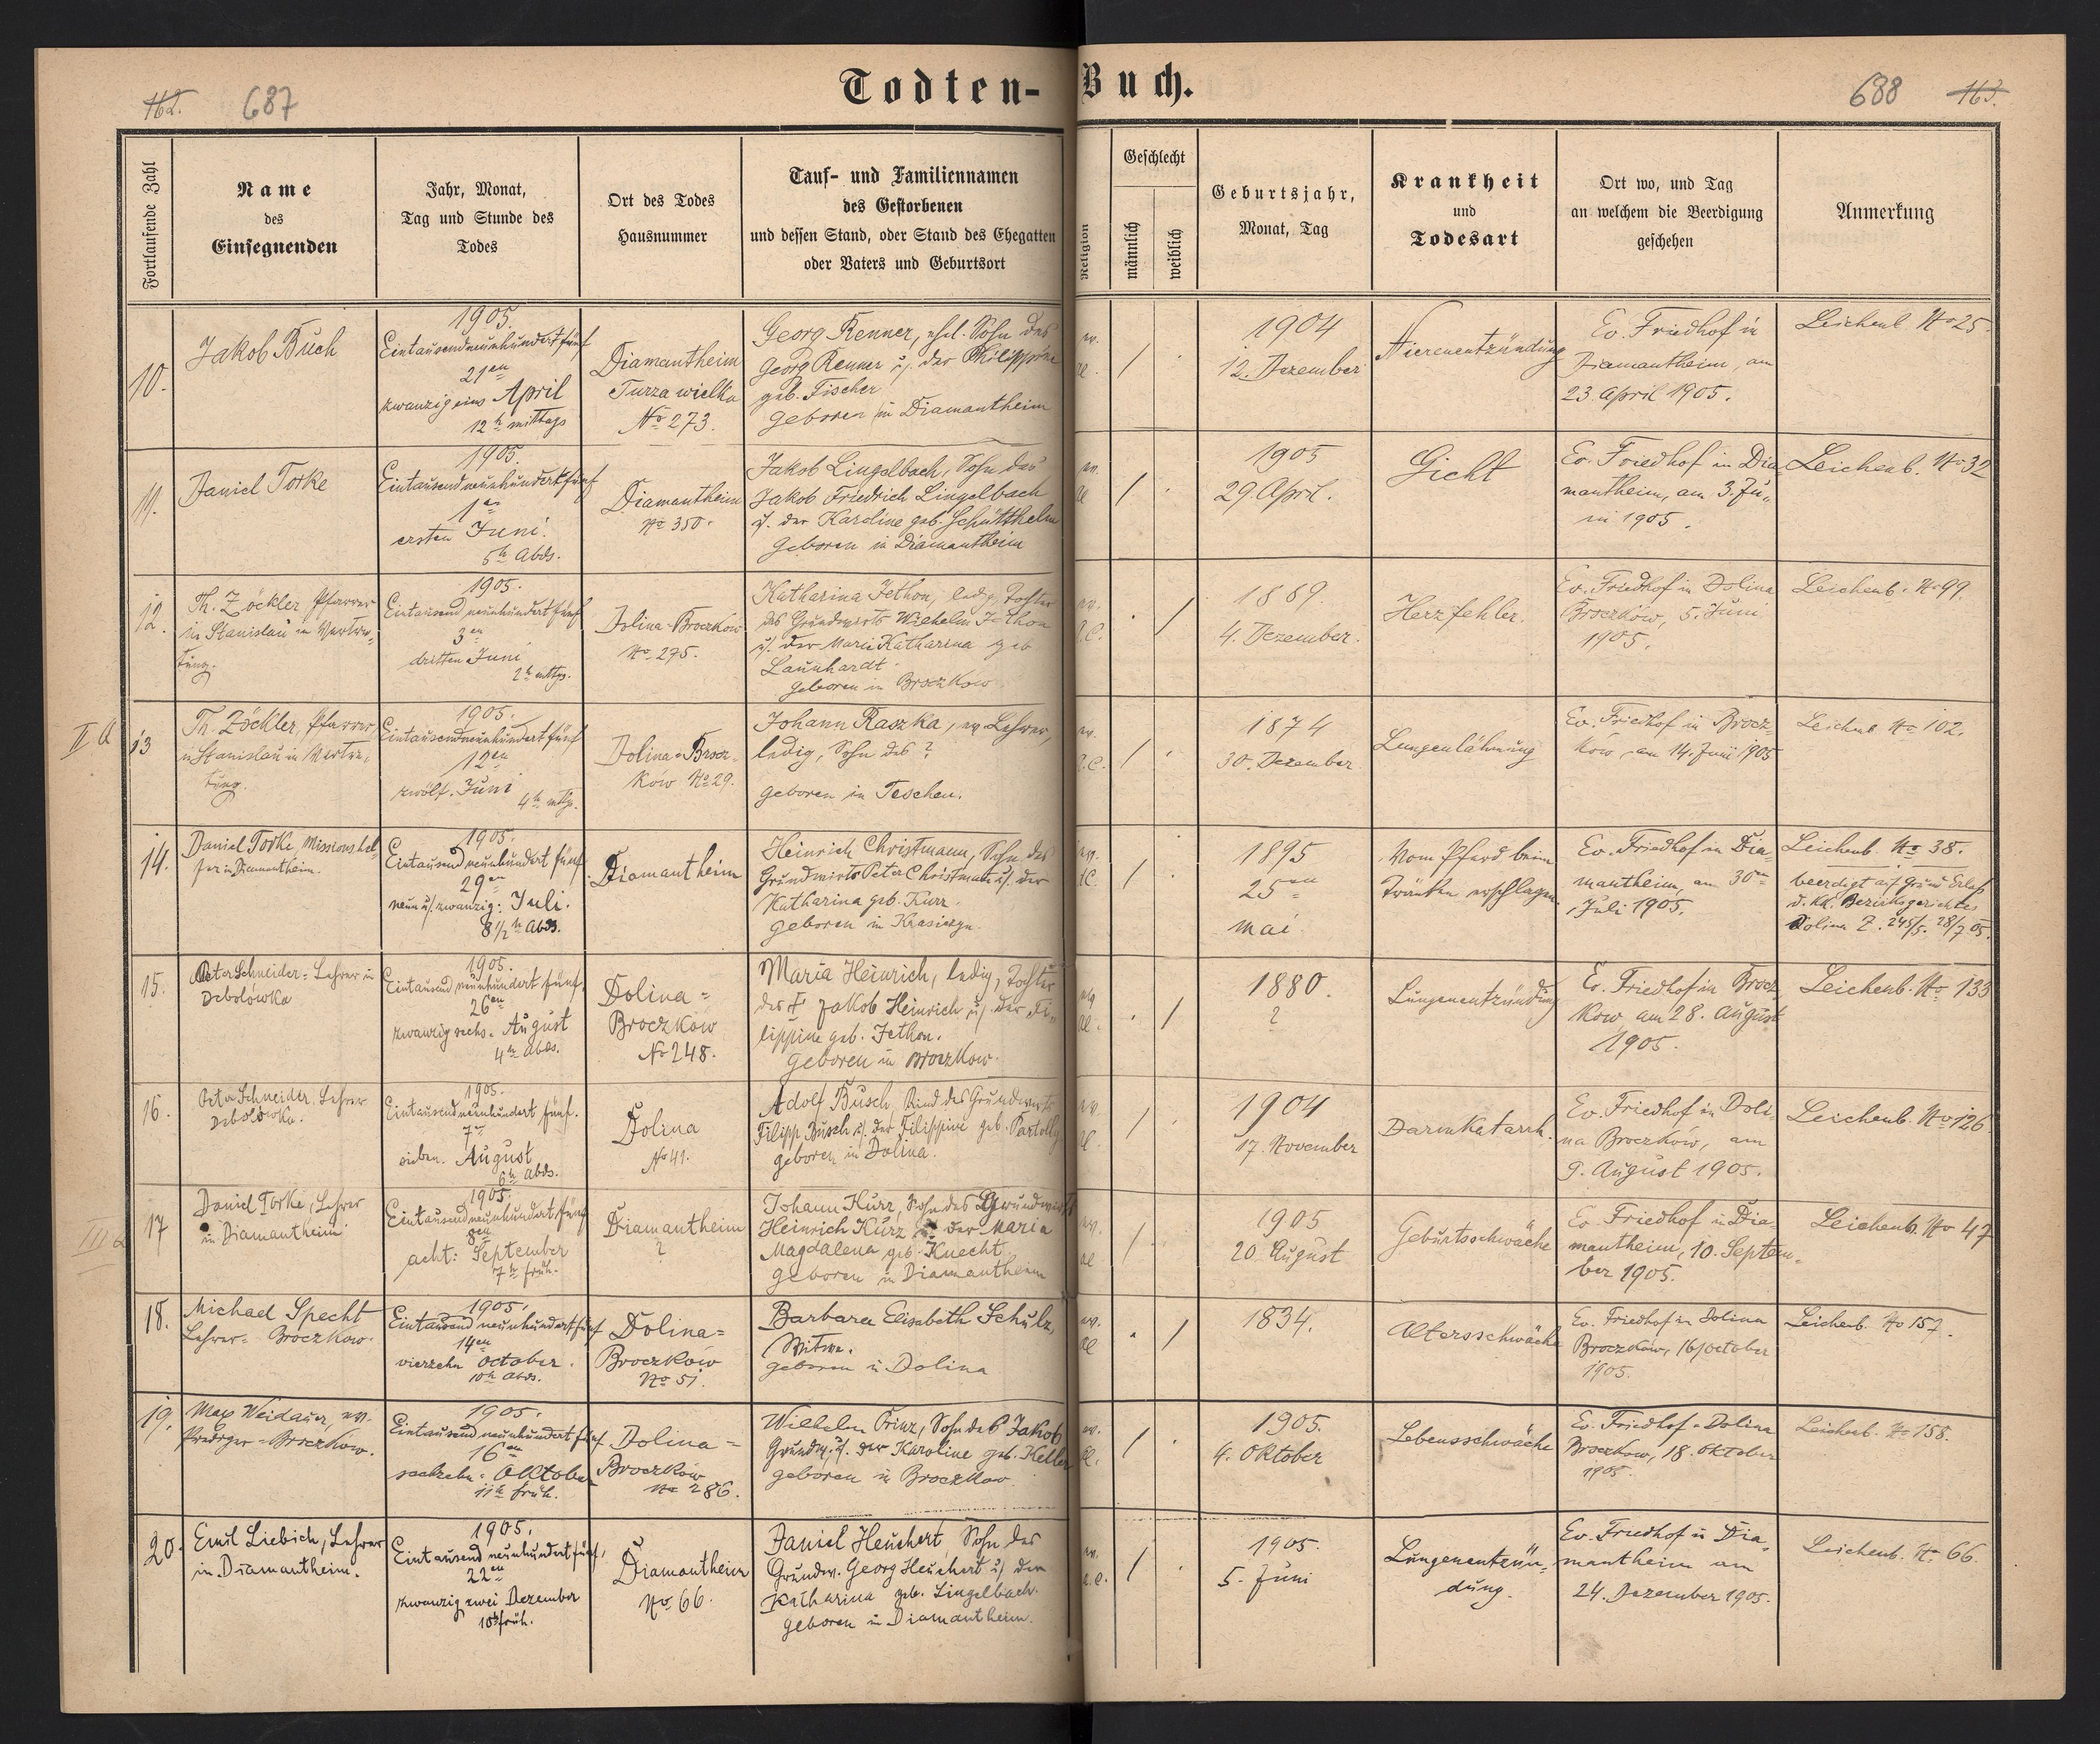 Todten-Buch.
162. 687
688 163.
Fortlaufende Zahl
Name
des
Einsegnenden
Jahr, Monat,
Tag und Stunde des
Todes
Ort des Todes
Hausnummer
Tauf- und Familiennamen
des Gestorbenen
und dessen Stand, oder Stand des Ehegatten
oder Vaters und Geburtsort
Religion
Geschlecht
männlich
weiblich
Geburtsjahr,
Monat, Tag
Krankheit
und
Todesart
Ort wo, und Tag
an welchem die Beerdigung
geschehen
Anmerkung
10.
Jakob Buch
1905.
Eintausendneunhundertfünf
21en
zwanzig eins April
12h mittags
Diamantheim
Turza wielka
No 273.
Georg Renner, ehel. Sohn des
Georg Renner u. der Philippine
geb. Fischer
geboren in Diamantheim
ev.
/ .
1904
12. Dezember
Nierenentzündung
Ev. Friedhof in
Diamantheim, am
23 April 1905.
Leichenb. No 25.
11.
Daniel Torke
1905.
Eintausendneunhundertfünf
1en
ersten Juni.
5h Abds.
Diamantheim
No 350.
Jakob Lingelbach, Sohn des
Jakob Friedrich Lingelbach
u. der Karoline geb. Schütthelm
geboren in Diamantheim
/ .
1905
29. April.
Gicht
Ev. Friedhof in Dia
mantheim, am 3. Ju„
ni 1905.
Leichenb. No 32
12.
Th. Zöckler, Pfarrer
in Stanislau in Vertre„
tung.
1905.
Eintausend neunhundertfünf
3en
dritten Juni
2h mttgs.
Dolina-Broczków
No. 295.
Katharina Jethon, ledig, Tochter
des Grundwirts Wilhelm Jethon
u. der Marie Katharina geb
Launhardt
geboren in Broczkow
ev.
. /
1889.
4. Dezember.
Herzfehler.
Ev. Friedhof in Dolina
Broczków, 5. Juni
1905.
Leichenb. No 99.
II a
13
Th. Zöckler, Pfarrer
in Stanislau in Vertre„
tung.
1905.
Eintausendneunhundertfünf
12en
zwölf. Juni
4h mttgs.
Dolina-Brocz-
ków No 29.
Johann Raszka, ev. Lehrer,
ledig, Sohn des ?
geboren in Teschen.
/ .
1874
30. Dezember
Lungenlähmung
Ev. Friedhof in Brocz-
ków, am 14. Juni 1905
Leichenb No 102.
14.
Daniel Torke, Missionshel„
fer in Diamantheim.
1905.
Eintausend neunhundert fünf.
29en
neun u. zwanzig: Juli.
8 1/2h Abds.
Diamantheim
Heinrich Christmann, Sohn des
Grundwirts Peter Christmann u. der
Katharina geb. Kurz.
geboren in Krasiczyn
ev.
/ .
1895
25en
mai
Vom Pferd beim
Tränken erschlagen.
Ev. Friedhof in Dia-
mantheim, am 30en
Juli 1905.
Leichenb. No 38.
beerdigt auf Grund Erlaß
d. kk. Bezirksgerichtes
Dolina Z. 245/5. 28/7 05.
15.
Peter Schneider = Lehrer in
Debolówka
1905.
Eintausend neunhundert fünf.
26en
zwanzig sechs. August
4h Abds.
Dolina =
Broczkow
No 248.
Maria Heinrich, ledig, Tochter
des † Jakob Heinrich u. der Fi„
lippine geb. Jethon.
geboren in Broczkow.
. /
1880.
?
Lungenentzündung
Ev. Friedhof in Brocz
kow am 28. August
1905.
Leichenb. No 133
16.
Peter Schneider. Lehrer
Debolówka.
1905.
Eintausendneunhundert fünf.
7en
sieben. August
6h Abds.
Dolina
No 41.
Adolf Busch, Kind des Grundwirts
Filipp Busch u. der Filippine geb.
geboren in Dolina.
/ .
1904
17. November
Darmkatarrh.
Ev. Friedhof in Doli-
na Broczków, am
9. August 1905.
Leichenb. No 126
III a
17
Daniel Torke, Lehrer
in Diamantheim
1905.
Eintausendneunhundertfünf
8en
acht: September
7h früh.
Diamantheim
?
Johann Kurz, Sohn des Grundwirts
Heinrich Kurz u. der Maria
Magdalena geb. Knecht.
geboren in Diamantheim
/ .
1905
20. August
Geburtsschwäche
Ev. Friedhof in Dia
mantheim, 10. Septem-
ber 1905.
Leichenb. No 47
18.
Michael Specht
Lehrer = Broczkow.
1905.
Eintausend neunhundertfünf
14en
vierzehn October.
10h Abds.
Dolina=
Broczków
No 51.
Barbara Elisabeth Schulz,
Witwe.
geboren in Dolina
ev.
. /
1834.
Altersschwäche
Ev. Friedhof in Dolina
Broczków, 16 October
1905.
Leichenb. No 157.
19.
Max Weidauer, ev.
Prediger = Broczkow.
1905.
Eintausend neunhundert fünf
16en
sechzehn: Oktober
11h früh.
Dolina =
Broczkow
No 286.
Wilhelm Prinz, Sohn des Jakob
Grundw. u. der Karoline geb. Keller
geboren in Broczkow
ev.
/ .
1905.
4. Oktober
Lebensschwäche
Ev. Friedhof = Dolina
Broczkow, 18. Oktober
1905.
Leichenb. No 158.
20.
Emil Liebich, Lehrer
in Diamantheim.
1905.
Eintausend neunhundert fünf,
22en
zwanzig zwei Dezember
10h früh.
Diamantheim
No 66.
Daniel Heuchert, Sohn des
Grundw. Georg Heuchert u. der
Katharina geb. Lingelbach.
geboren in Diamantheim.
/ .
1905.
5. Juni
Lungenentzün„
dung.
Ev. Friedhof in Dia„
mantheim am
24. Dezember 1905.
Leichenb. No 66.